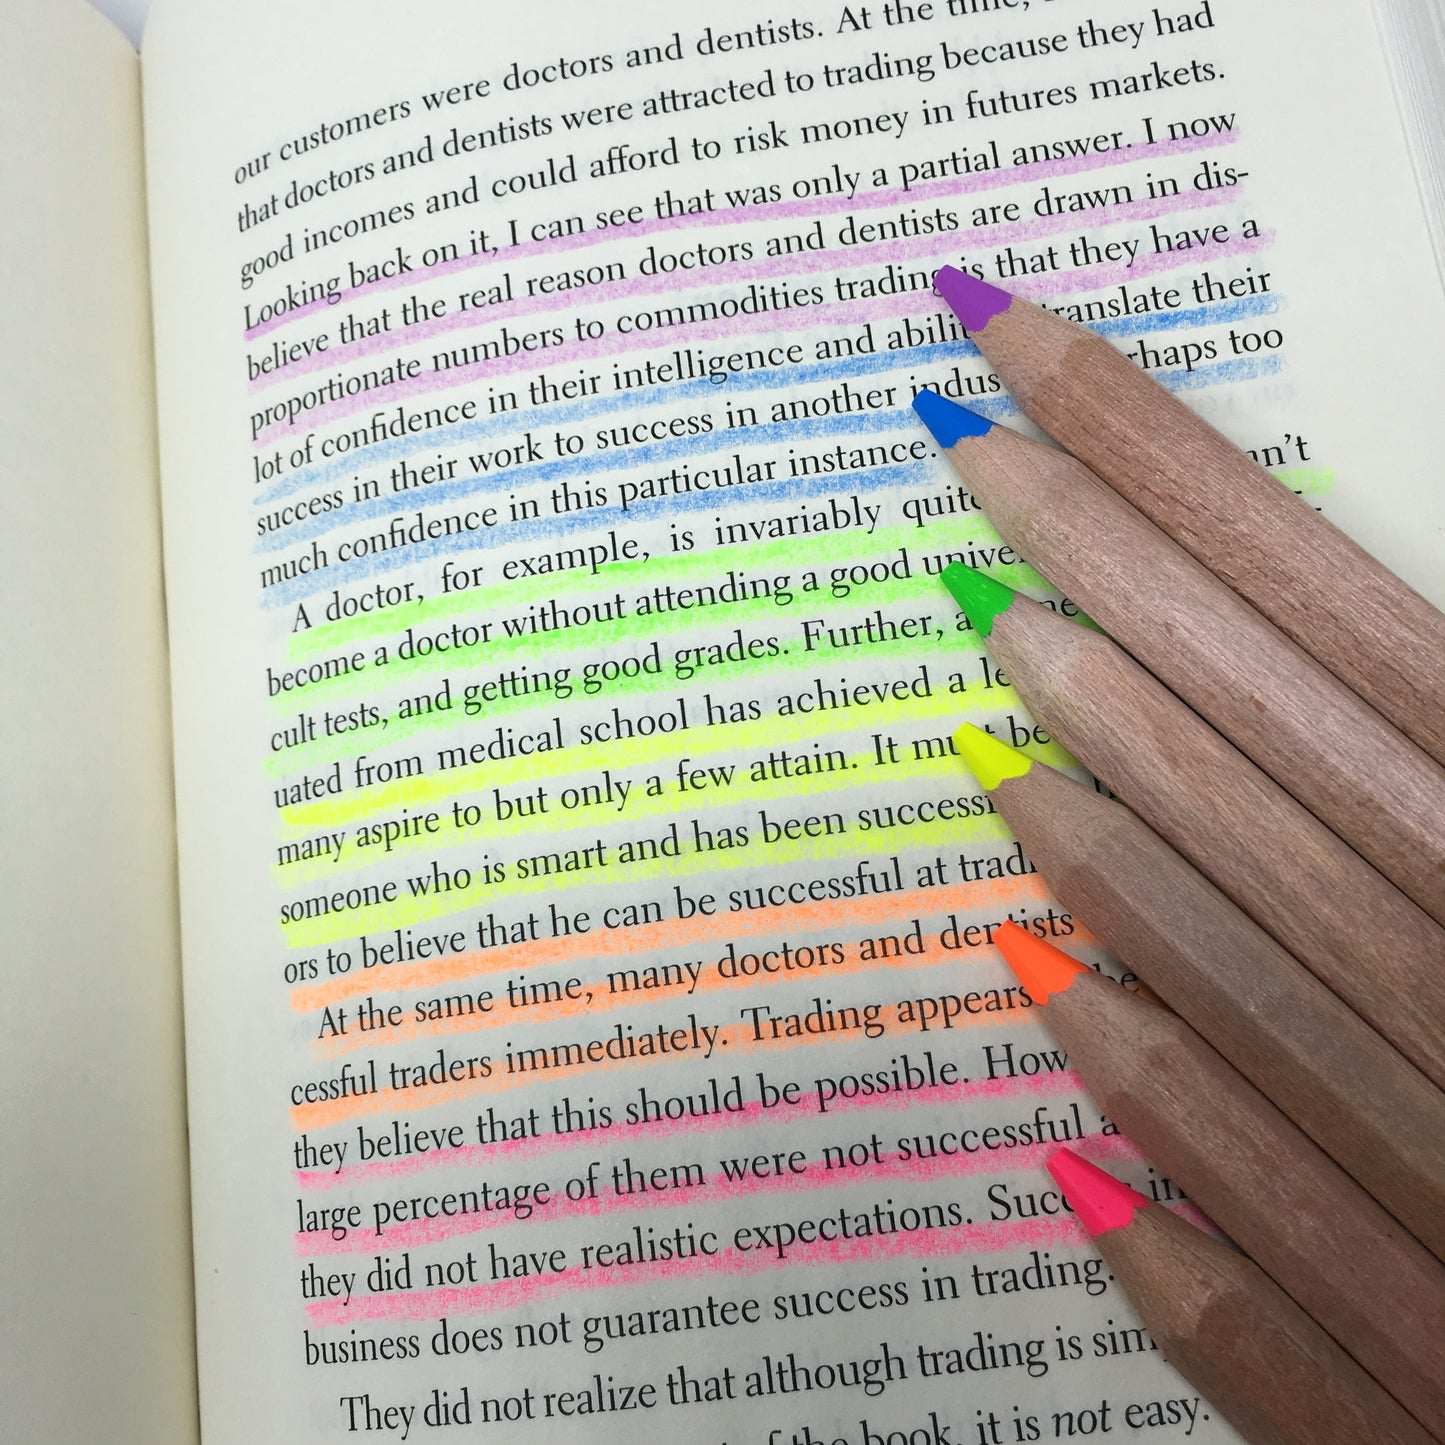 our customers were doctors and dentists. At the time,
that doctors and dentists were attracted to trading because they had
good incomes and could afford to risk money in futures markets.
Looking back on it, I can see that was only a partial answer. I now
believe that the real reason doctors and dentists are drawn in dis-
proportionate numbers to commodities trading is that they have a
lot of confidence in their intelligence and translate their
success in their work to success in another too
much confidence in this particular instance.
A doctor, for example, is invariably
become a doctor without attending a good
cult tests, and getting good grades. Further,
uated from medical school has achieved a
many aspire to but only a few attain. It must be
someone who is smart and has been
ors to believe that he can be successful at
At the same time, many doctors and dentists
cessful traders immediately. Trading appears
they believe that this should be possible.
large percentage of them were not successful
they did not have realistic expectations. in
business does not guarantee success in trading.
They did not realize that although trading is
of the book, it is not easy.